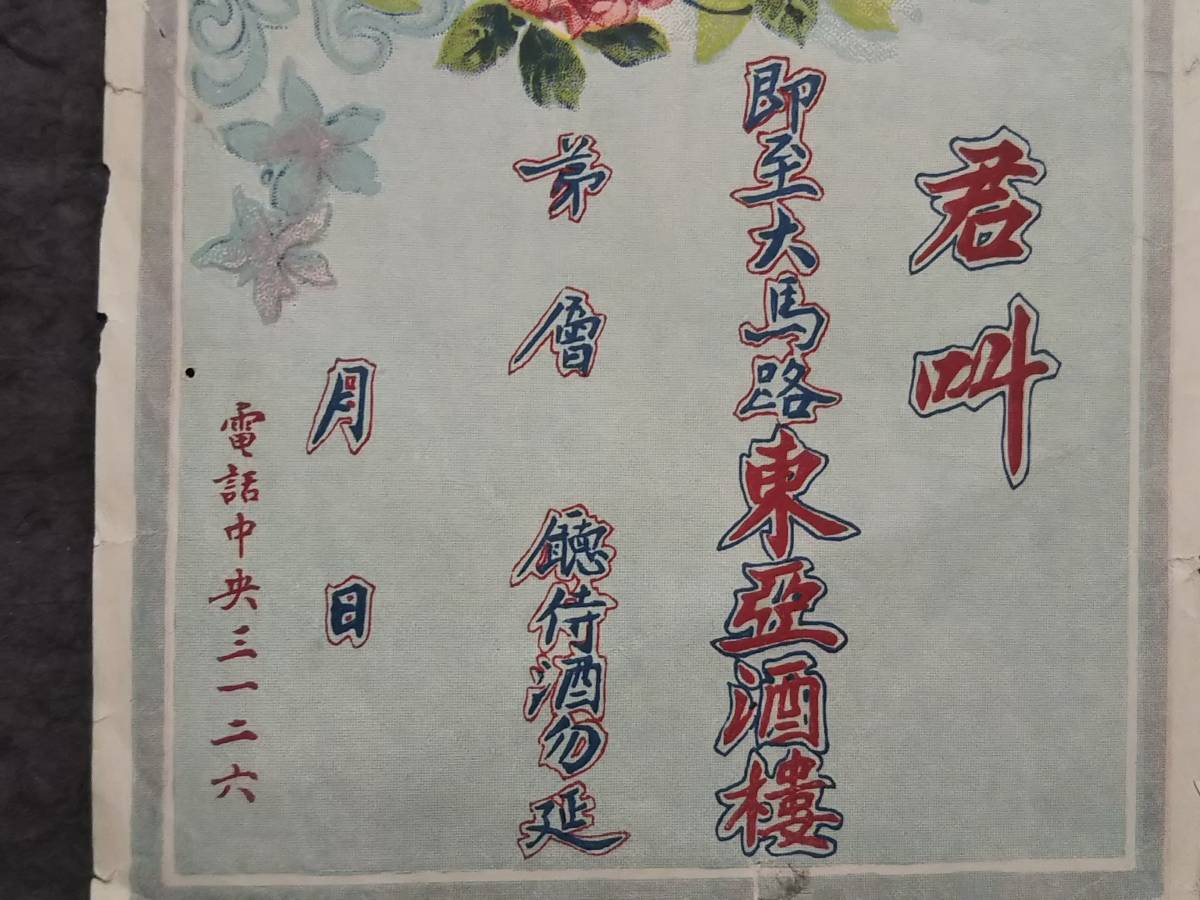 君叫
即至大馬路東亞酒樓
第層廳侍酒勿延
月日
電話中央三一二六